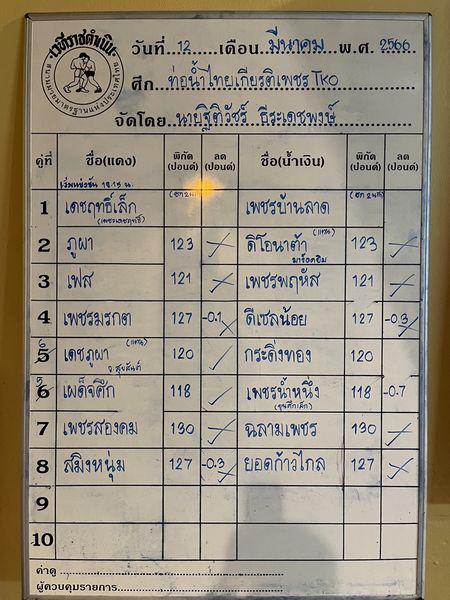 เวทีราชดำเนิน
สนามมวยมาตรฐานแห่งประเทศไทย
วันที่ 12 เดือน มีนาคม พ.ศ. 2566
ศึก ท่อน้ำไทยเกียรติเพชร TKO
จัดโดย นายฐิติวัชร์ ธีระเดชพงษ์
คู่ที่ ชื่อ(แดง) พิกัด (ปอนด์) ลด (ปอนด์) ชื่อ(น้ำเงิน) พิกัด (ปอนด์) ลด (ปอนด์)
เริ่มแข่งขัน 18.15 น.
1 เดชฤทธิ์เล็ก เพชรบ้านลาด
2 ภูผา 123 ดิโอนาต้า (แทน) 123
3 เฟส 121 เพชรพฤหัส 121
4 เพชรมรกต 127 -0.1 ดีเซลน้อย 127 -0.3
5 เดชภูผา (แทน) 120 กระดิ่งทอง 120
จ.สุขสันต์
6 เผด็จศึก 118 เพชรน้ำหนึ่ง 118 -0.7
7 เพชรสองคม 130 ฉลามเพชร 130
8 สมิงหนุ่ม 127 -0.3 ยอดก้าวไกล 127
9
10
ค่าดู
ผู้ควบคุมรายการ